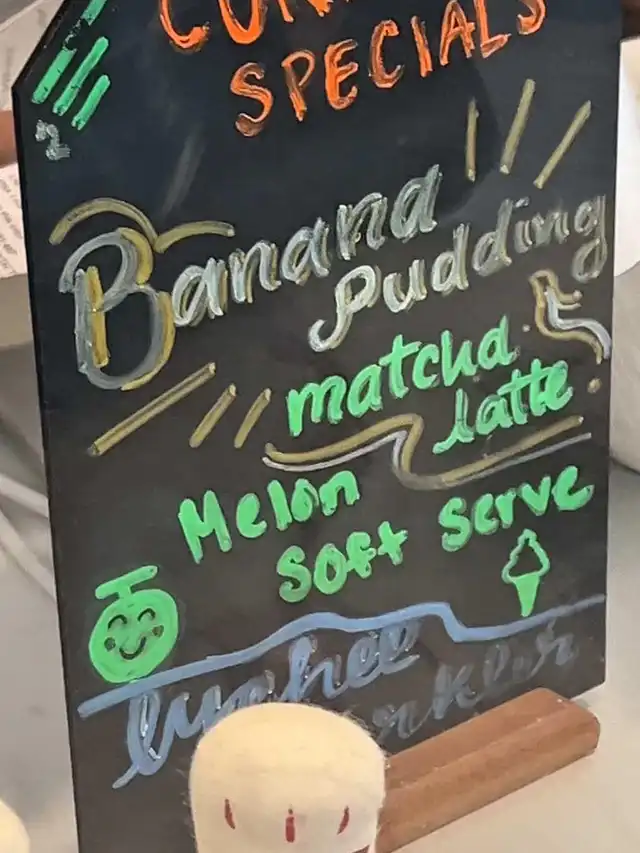 SPECIALS
Banana
Pudding
matcha
latte
Melon
Soft Serve
lychee